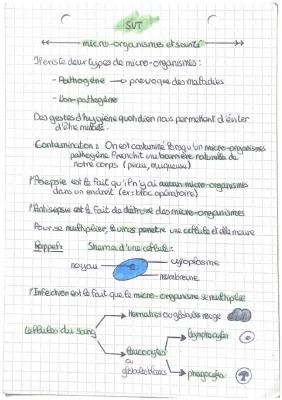 SVT
micro-organismes et santé
Il existe deux types de micro-organismes :
- Pathogène → provoque des maladies
- Non-pathogène
Des gestes d'hygiène quotidien nous permettent d'éviter
d'être malade.
Contamination : On est contaminé lorsqu'un micro-organismes
pathogène franchit une barrière naturelle de
notre corps (peau, muqueuse)
l'Asepsie est le fait qu'il n'y ai aucun micro-organismes
dans un endroit (ex: bloc opératoire)
l'Antisepsie est le fait de détruire des micro-organismes
Pour se multiplier, le virus pénètre une cellule et elle meure
Rappel : Shema d'une cellule :
noyau
cytoplasme
membrane
l'Infection est le fait que le micro-organisme se multiplie
Cellules du sang
Hématies ou globules rouge
Leucocytes
ou
globules blancs
lymphocytes
phagocytes